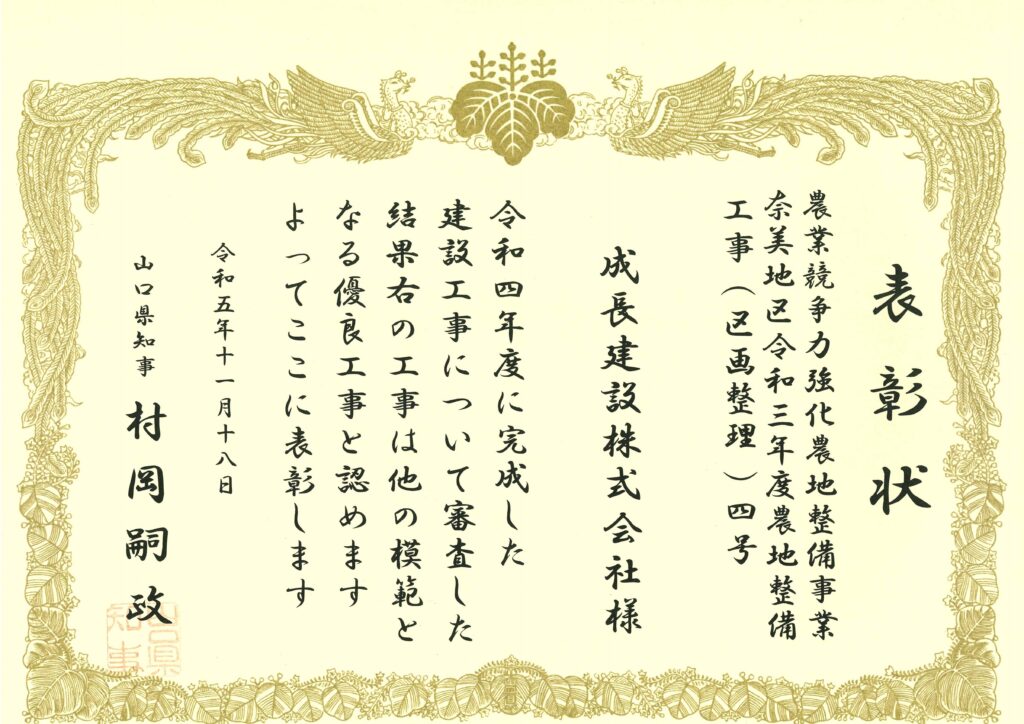 表彰状
農業競争力強化農地整備事業
奈美地区令和三年度農地整備
工事（区画整理）四号
成長建設株式会社様
令和四年度に完成した
建設工事について審査した
結果右の工事は他の模範と
なる優良工事と認めます
よってここに表彰します
令和五年十一月十八日
山口県知事 村岡嗣政
山口縣
知事